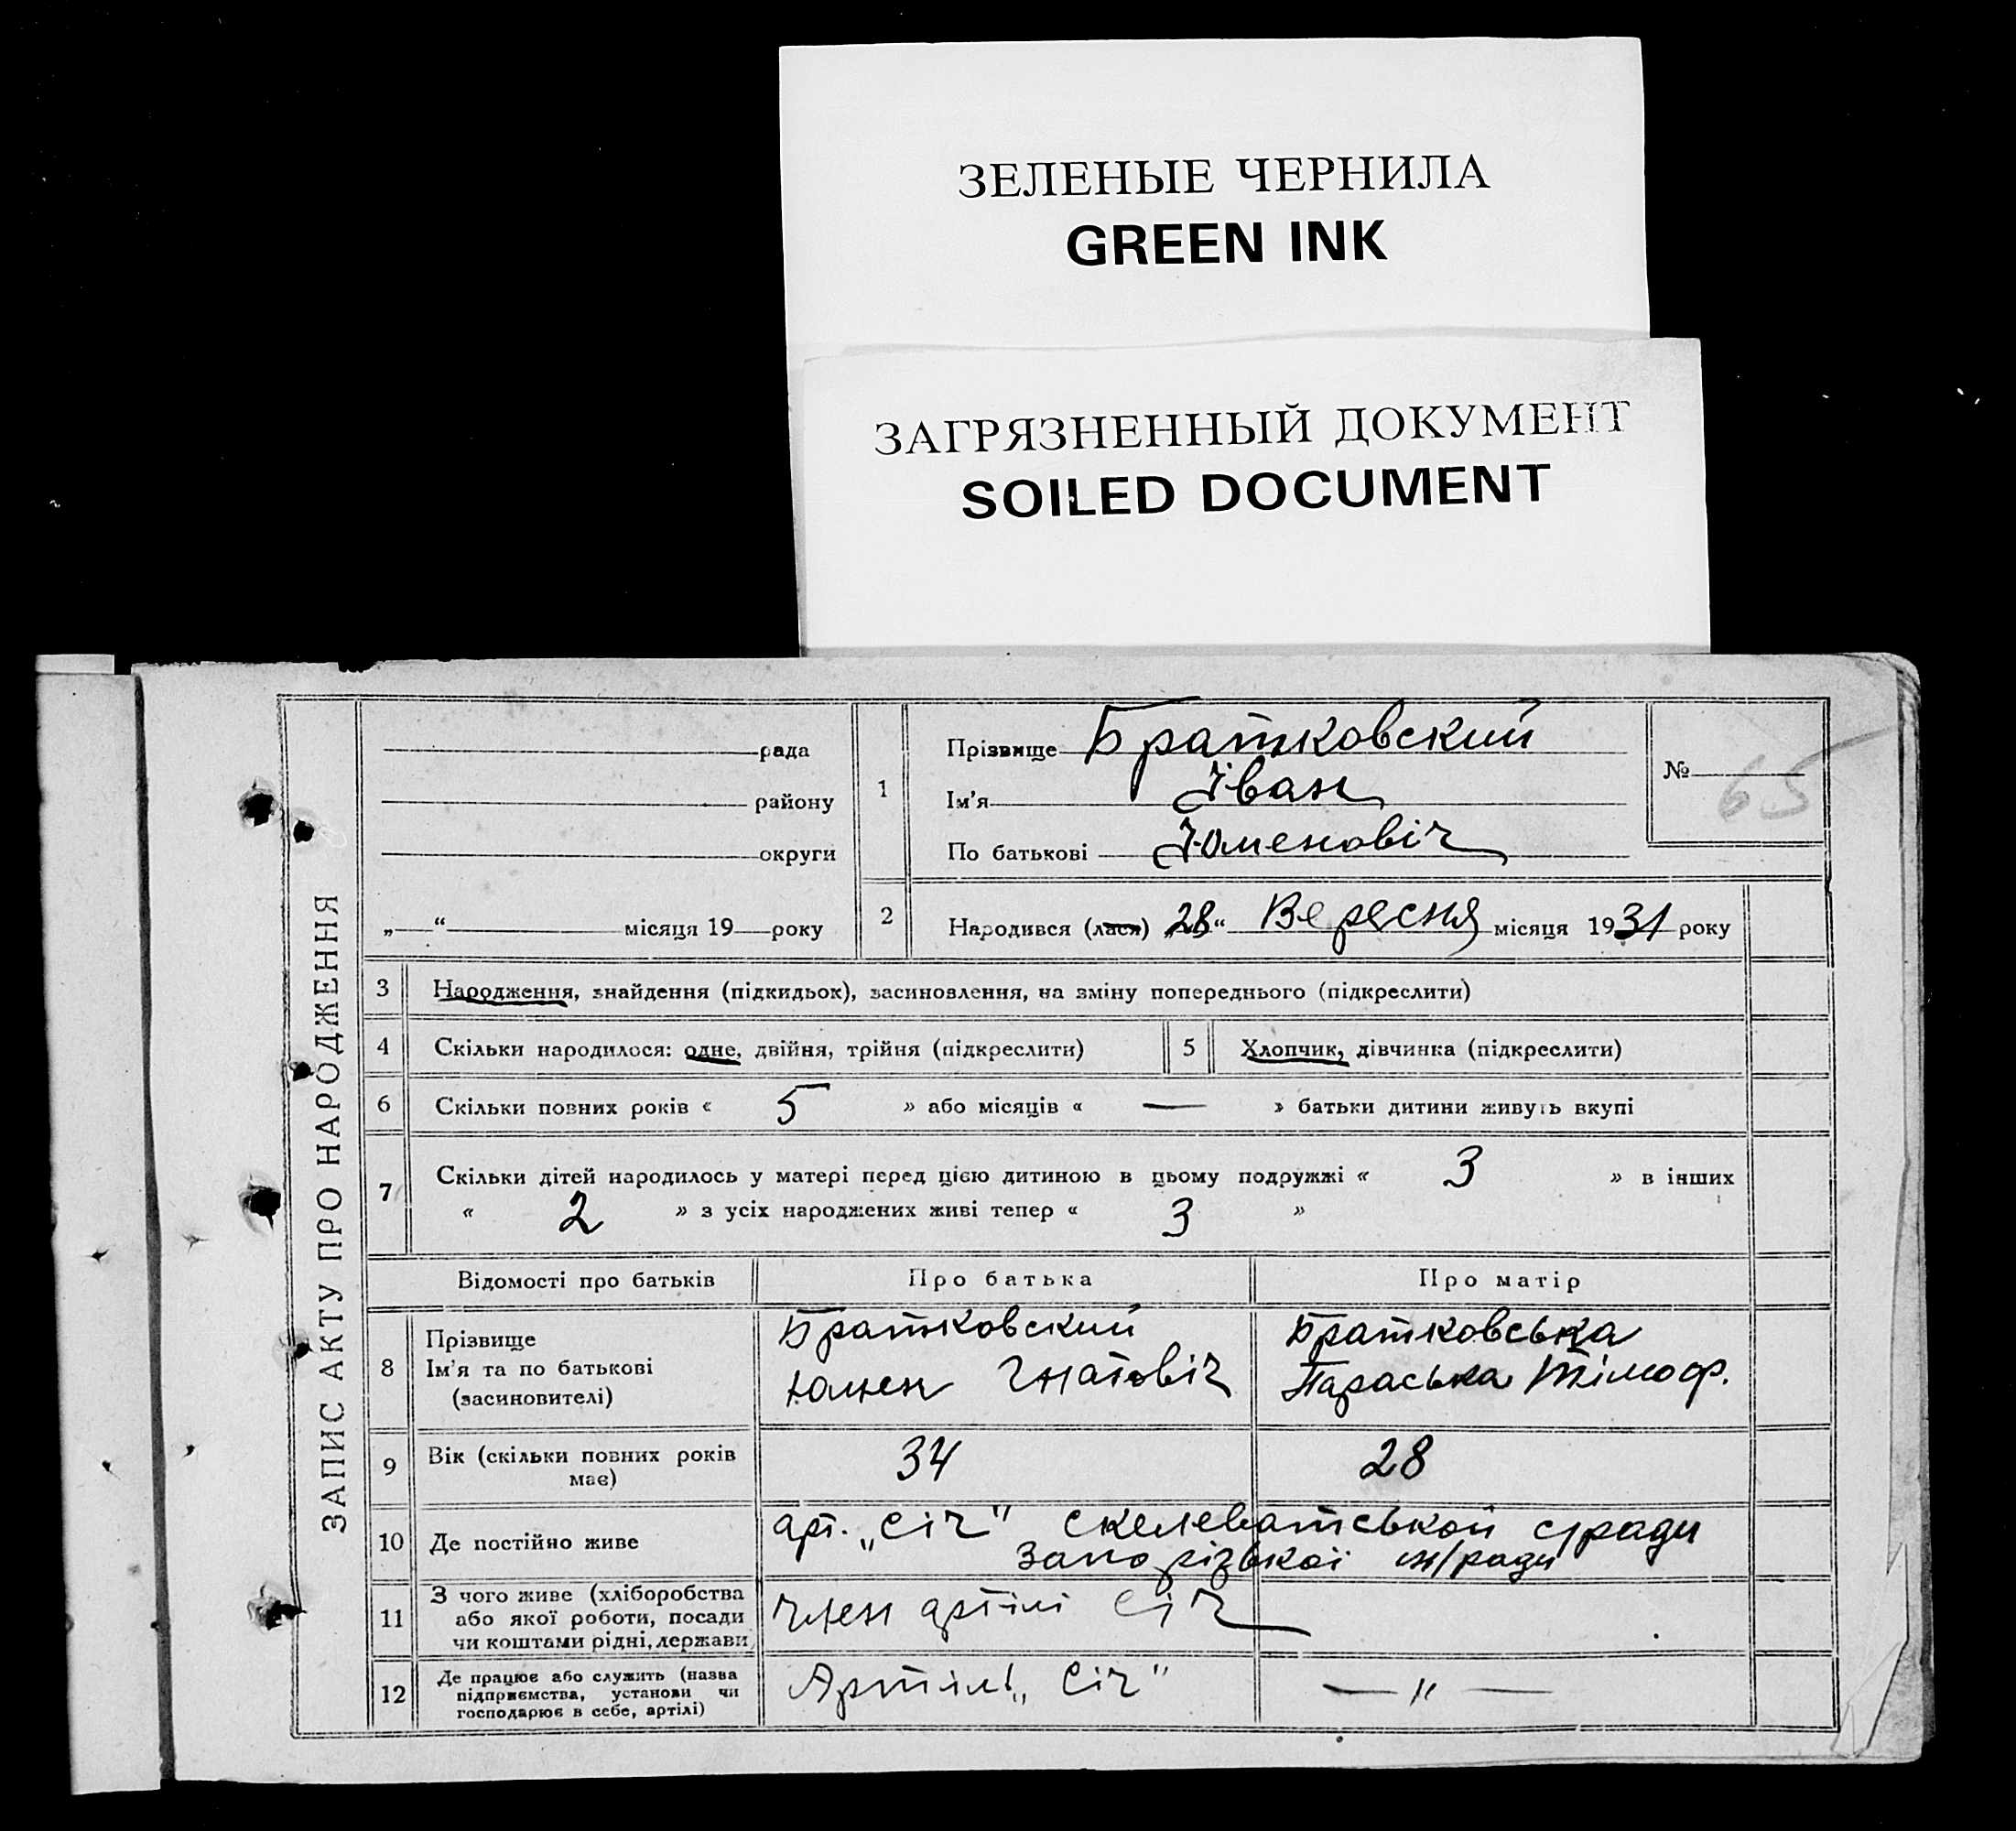 ЗЕЛЕНЫЕ ЧЕРНИЛА
GREEN INK
ЗАГРЯЗНЕННЫЙ ДОКУМЕНТ
SOILED DOCUMENT
ЗАПИС АКТУ ПРО НАРОДЖЕННЯ
рада
району
округи
„ “ місяця 19 року
1
Прізвище Братковский
Ім'я Іван
По батькові Юменовіч
№ 65
2
Народився (лася) „28“ Вересня місяця 1931 року
3 Народження, знайдення (підкидьок), засиновлення, на зміну попереднього (підкреслити)
4 Скільки народилося: одне, двійня, трійня (підкреслити) 5 Хлопчик, дівчинка (підкреслити)
6 Скільки повних років « 5 » або місяців « — » батьки дитини живуть вкупі
7 Скільки дітей народилось у матері перед цією дитиною в цьому подружжі « 3 » в інших
« 2 » з усіх народжених живі тепер « 3 »
Відомості про батьків Про батька Про матір
8 Прізвище
Ім'я та по батькові
(засиновителі)
Братковский
Юмен Гнатовіч
Братковська
Параська Тімоф.
9 Вік (скільки повних років
має)
34 28
10 Де постійно живе
арт. „Січ" Скелеватськой с/ради
Запорізької м/ради
11 З чого живе (хліборобства
або якої роботи, посади
чи коштами рідні, держави)
член артілі Січ
12 Де працює або служить (назва
підприємства, установи чи
господарює в себе, артілі)
Артілі „Січ" — " —